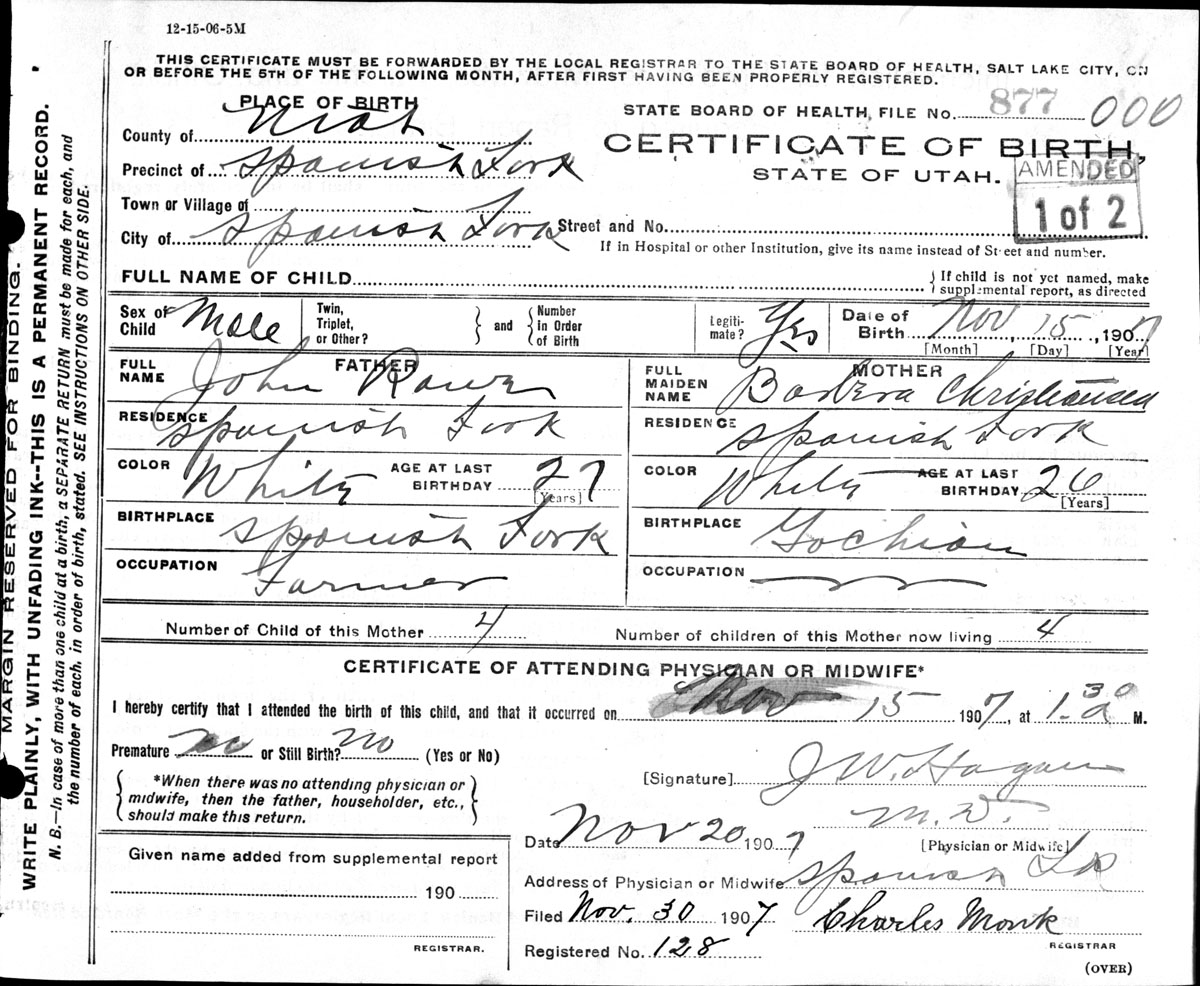 12-15-06-5M
THIS CERTIFICATE MUST BE FORWARDED BY THE LOCAL REGISTRAR TO THE STATE BOARD OF HEALTH, SALT LAKE CITY, ON
OR BEFORE THE 5TH OF THE FOLLOWING MONTH, AFTER FIRST HAVING BEEN PROPERLY REGISTERED.
MARGIN RESERVED FOR BINDING.
WRITE PLAINLY, WITH UNFADING INK--THIS IS A PERMANENT RECORD.
N. B.—In case of more than one child at a birth, a SEPARATE RETURN must be made for each, and
the number of each, in order of birth, stated. SEE INSTRUCTIONS ON OTHER SIDE.
PLACE OF BIRTH
County of Utah
Precinct of Spanish Fork
Town or Village of
City of Spanish Fork
STATE BOARD OF HEALTH, FILE No. 877 000
CERTIFICATE OF BIRTH,
STATE OF UTAH.
AMENDED
1 of 2
Street and No.
If in Hospital or other Institution, give its name instead of Street and number.
FULL NAME OF CHILD
If child is not yet named, make
supplemental report, as directed
Sex of Child Male
Twin, Triplet, or Other?
and
Number in Order of Birth
Legiti-mate? Yes
Date of Birth Nov 15, 1907
[Month] [Day] [Year]
FATHER
FULL NAME John
RESIDENCE Spanish Fork
COLOR White AGE AT LAST BIRTHDAY 27
[Years]
BIRTHPLACE Spanish Fork
OCCUPATION Farmer
MOTHER
FULL MAIDEN NAME Barbera Christiansen
RESIDENCE Spanish Fork
COLOR White AGE AT LAST BIRTHDAY 26
[Years]
BIRTHPLACE
OCCUPATION
Number of Child of this Mother 4
Number of children of this Mother now living 4
CERTIFICATE OF ATTENDING PHYSICIAN OR MIDWIFE*
I hereby certify that I attended the birth of this child, and that it occurred on Nov 15 1907, at 1.30 a M.
Premature no or Still Birth? No (Yes or No)
*When there was no attending physician or
midwife, then the father, householder, etc.,
should make this return.
[Signature] J W. Hagan
M. D.
[Physician or Midwife]
Date Nov 20 1907
Address of Physician or Midwife Spanish Fk
Filed Nov. 30 1907 Charles Monk
REGISTRAR
Registered No. 128
(OVER)
Given name added from supplemental report
190
REGISTRAR.